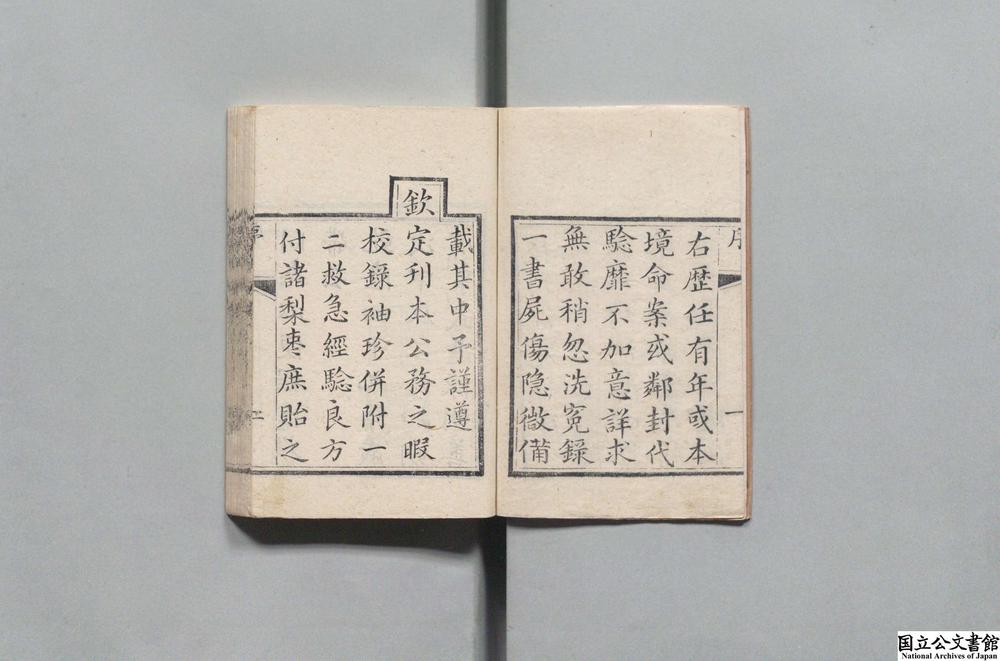 序
一
右歷任有年或本
境命案或鄰封代
驗靡不加意詳求
無敢稍忽洗冤錄
一書屍傷隱微備
載其中予謹遵
欽定刊本公務之暇
校錄袖珍併附一
二救急經驗良方
付諸梨棗庶貽之
序
二
国立公文書館
National Archives of Japan